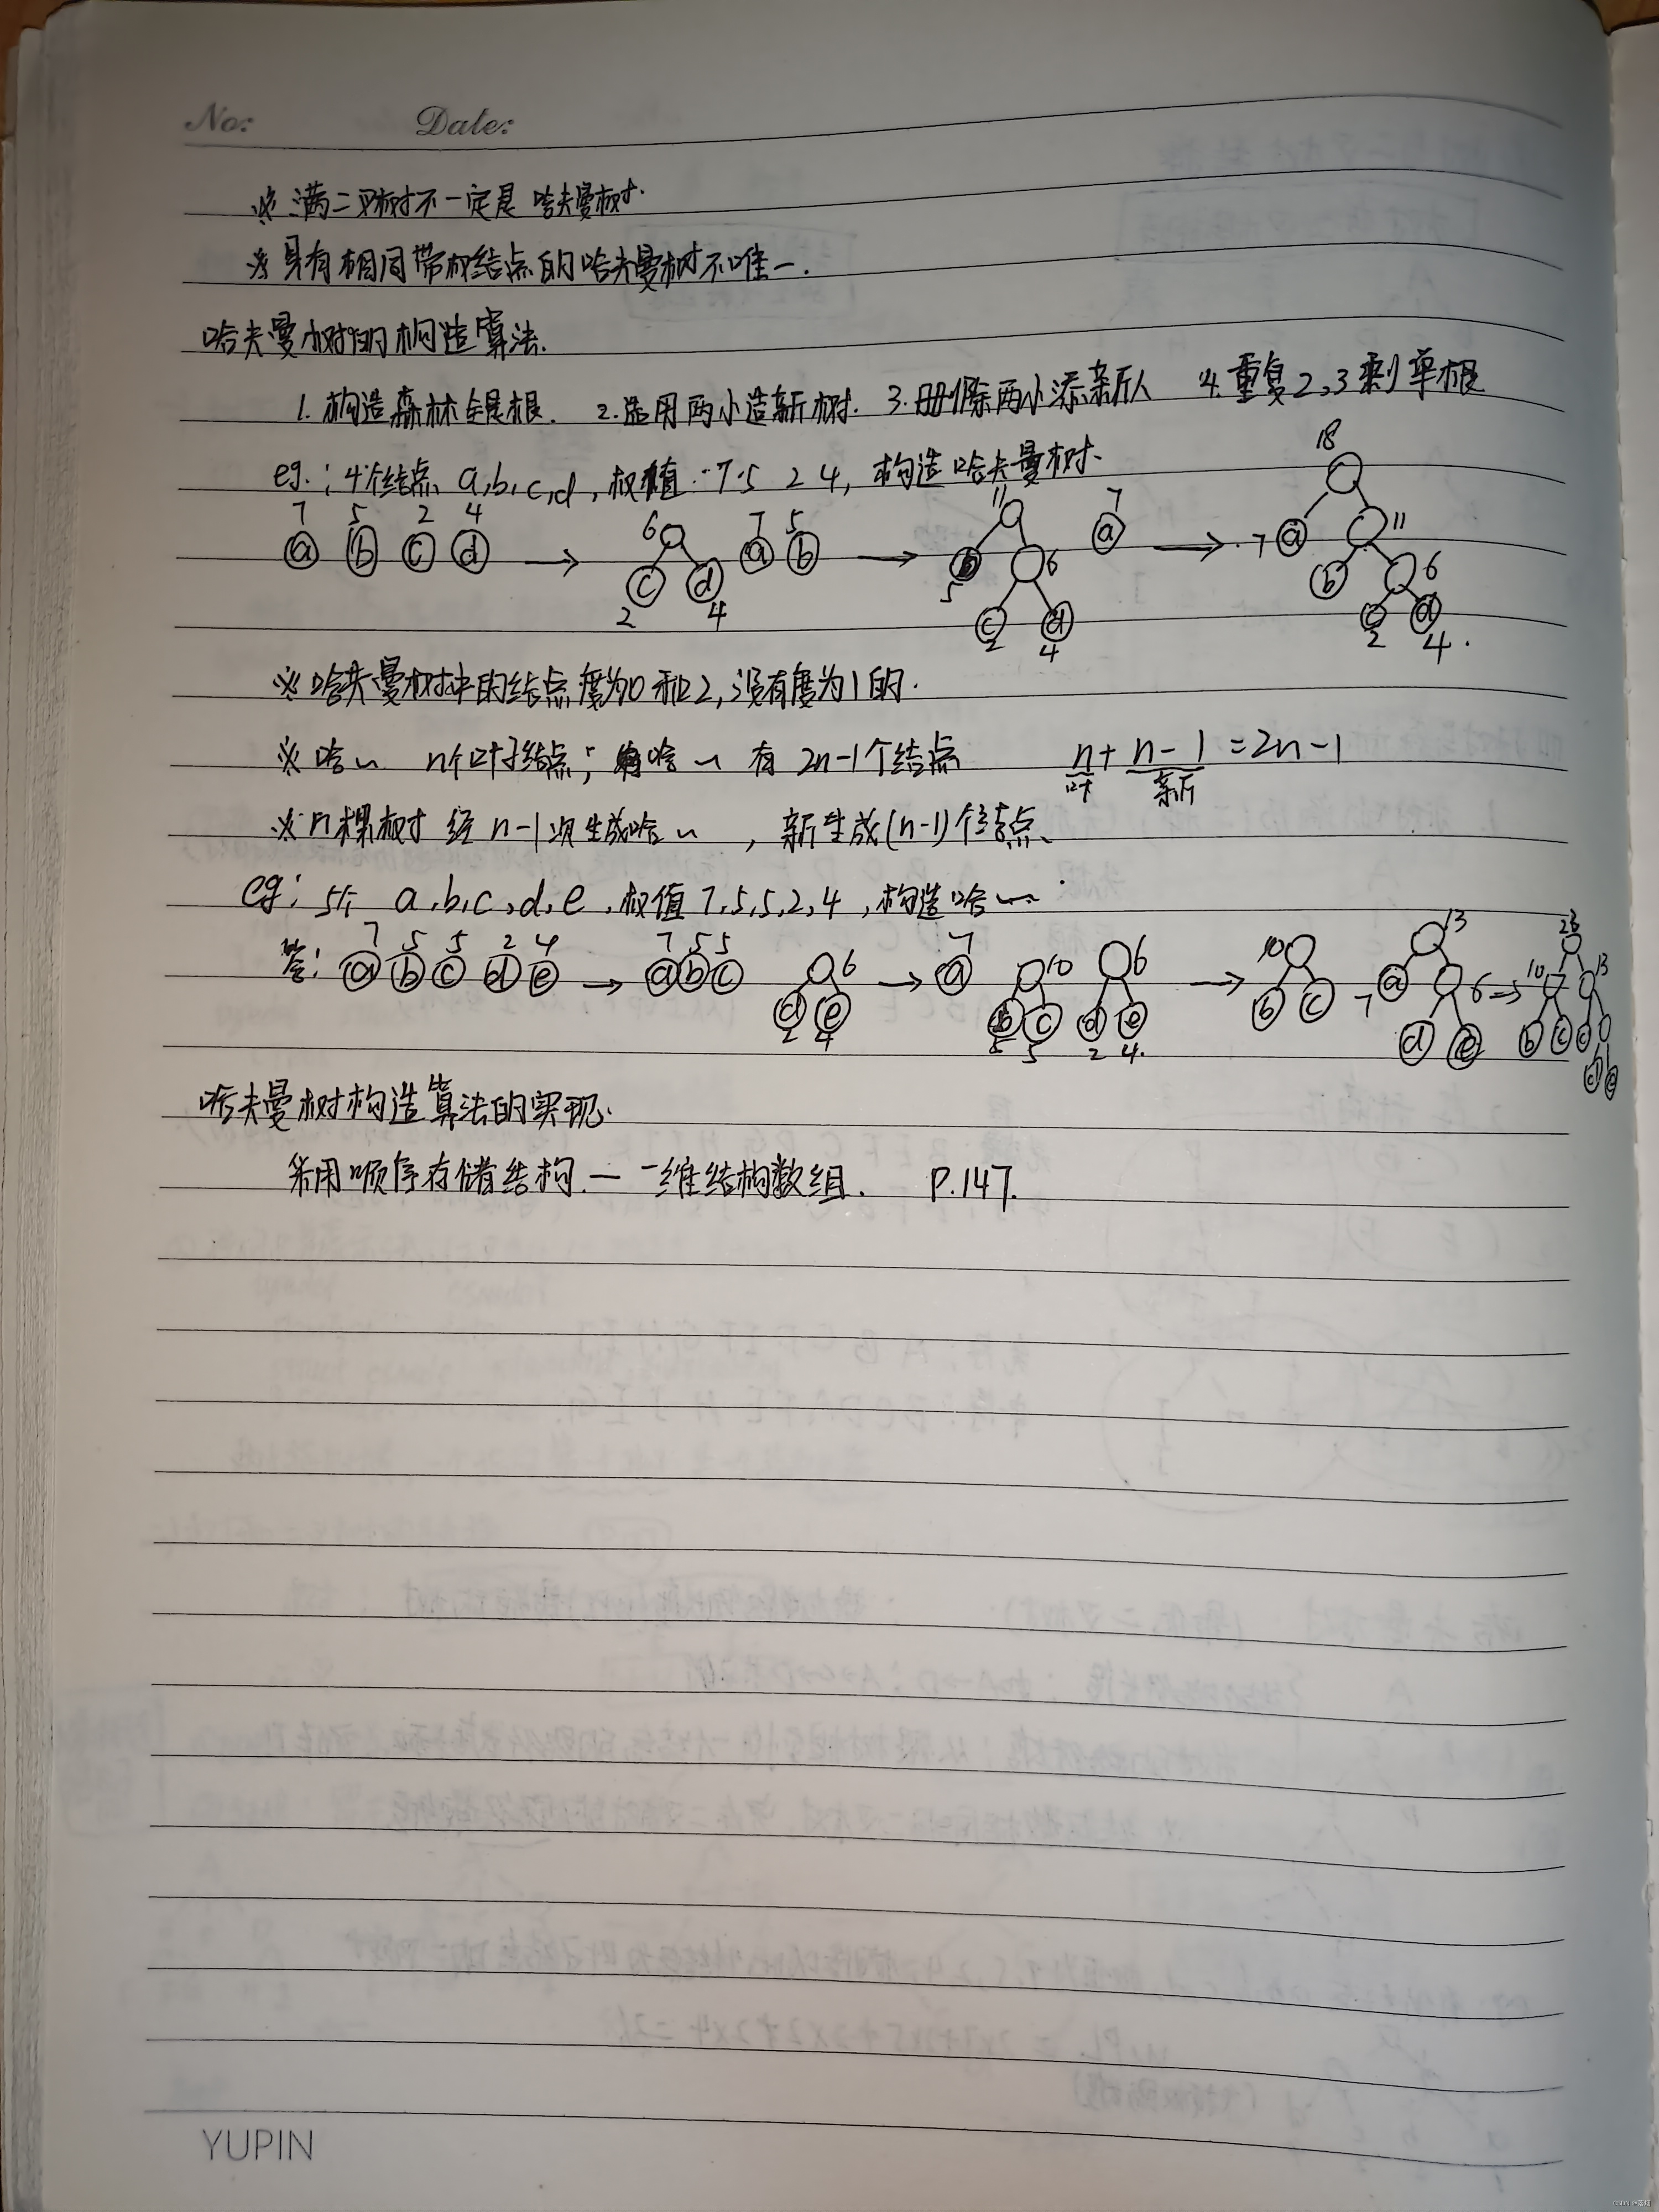 No: Date:
※ 满二叉树不一定是哈夫曼树.
※ 具有相同带权结点的哈夫曼树不唯一.
哈夫曼树的构造算法.
1. 构造森林全是根. 2. 选用两小造新树. 3. 删除两小添新人 4. 重复2,3剩单根
eg.: 4个结点 a,b,c,d, 权值 7 5 2 4, 构造哈夫曼树.
18
7 5 2 4 6 7 5 11 7
a b c d → c d a b → b 6 a → 7 a 11
2 4 5 c d b 6
2 4 c d
2 4.
※ 哈夫曼树中的结点度为0和2, 没有度为1的.
※ 哈~ n个叶子结点; 哈~ 有 2n-1个结点 n + n-1 = 2n-1
叶 新
※ n棵树 经 n-1次生成哈~, 新生成(n-1)个结点.
eg: 5个 a,b,c,d,e, 权值 7,5,5,2,4, 构造哈~
答: 7 5 5 2 4 7 5 5 6 7 10 6 10 13
a b c d e → a b c d e → a b c d e → b c 7 a 6 → 10 13
2 4 5 5 2 4. d e b c
d e
哈夫曼树构造算法的实现.
采用顺序存储结构 — 一维结构数组. P.147.
YUPIN